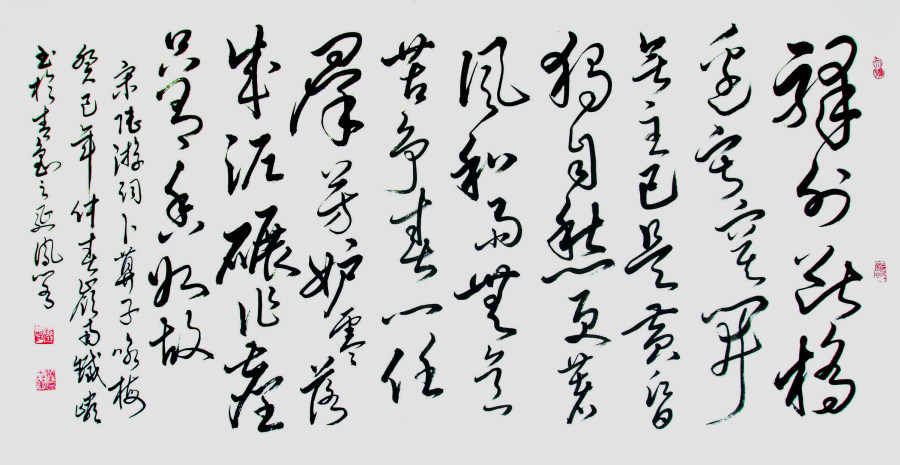 驛外断橋
邊寂寞開
無主已是黄昏
獨自愁更著
風和雨無意
苦争春一任
羣芳妒零落
成泥碾作塵
只有香如故
宋陸游詞卜算子咏梅
癸巳年仲春嶺南鐵嶺
书於青之風